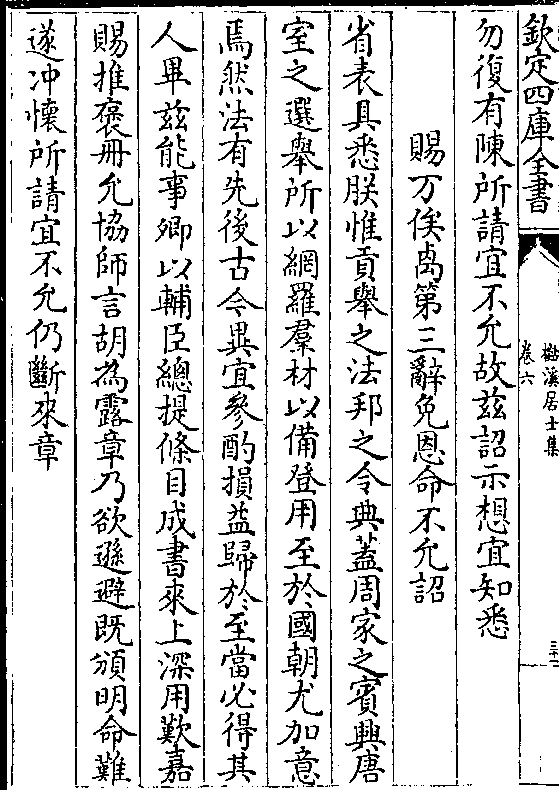 欽定四庫全書
楳溪居士集
卷六
三十
勿復有陳所請宜不允故兹詔示想宜知悉
賜万俟卨第三辭免恩命不允詔
省表具悉朕惟貢舉之法邦之令典蓋周家之賓興唐
室之選舉所以網羅羣材以備登用至於國朝尤加意
焉然法有先後古今異宜參酌損益歸於至當必得其
人畢兹能事卿以輔臣總提條目成書來上深用歎嘉
賜推褒冊允協師言胡為露章乃欲遜避既頒明命難
遂冲懷所請宜不允仍斷來章